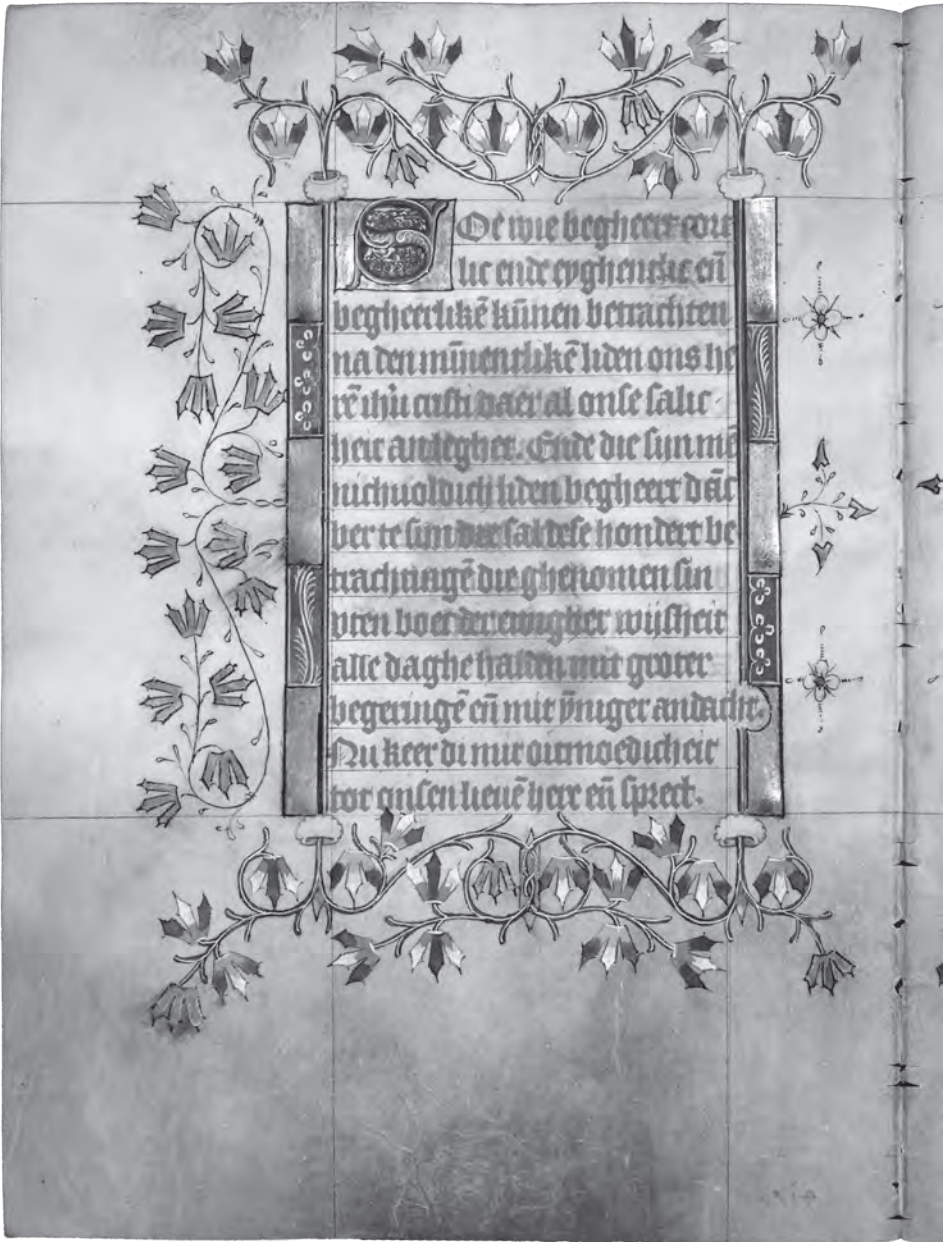 SOe wie begheert cort
lic ende eyghentlic eñ
begheerlikē kūnen betrachten
na den mīnentlikē liden ons he
rē ihū cristi daer al onse salic
heit anlegher. Ende die sijn mē
nichuoldich liden begheert
ber te sijn die sal dese hondert be
trachtingē die ghenomen sin
vten boec der ewigher wijsheit
alle daghe halden mit groter
begeringē eñ mit ÿniger andacht.
Nu keer di mit oitmoedicheit
tot onsen lieuē here eñ spreet.